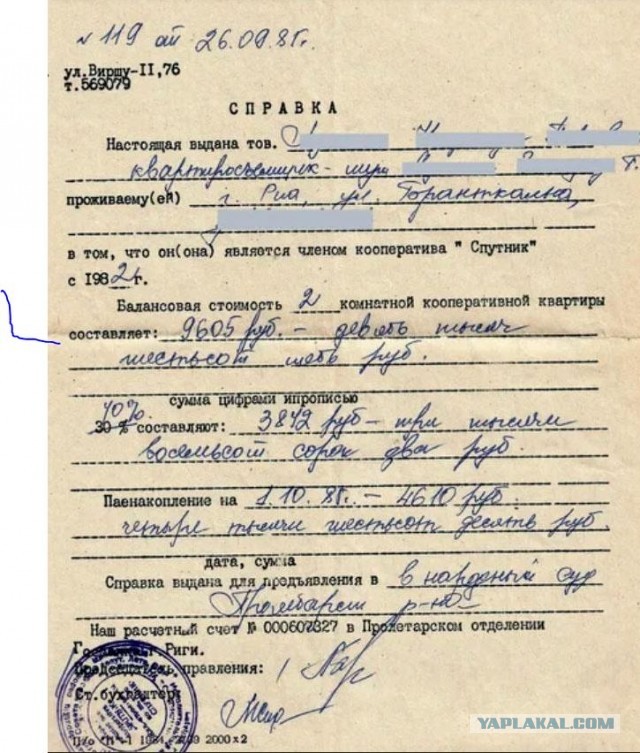 № 119 от 26.09.88г.
ул.Виршу-II,76
т.569079
СПРАВКА
Настоящая выдана тов.
квартиросъемщик -
проживаему(ей) г. Рига, ул.
в том, что он(она) является членом кооператива " Спутник"
с 1982г.
Балансовая стоимость 2 комнатной кооперативной квартиры
составляет: 9605 руб. - девять тысяч
шестьсот пять руб.
сумма цифрами ипрописью
40%.
30 % составляют: 3842 руб - три тысячи
восемьсот сорок два руб.
Паенакопление на 1.10.88г. - 4610 руб.
четыре тысячи шестьсот десять руб.
дата, сумма
Справка выдана для предъявления в в народный суд
р-на
Наш расчетный счет № 000607327 в Пролетарском отделении
Госбанка г. Риги.
Председатель правления:
Ст.бухгалтер:
2000х2
YAPLAKAL.COM